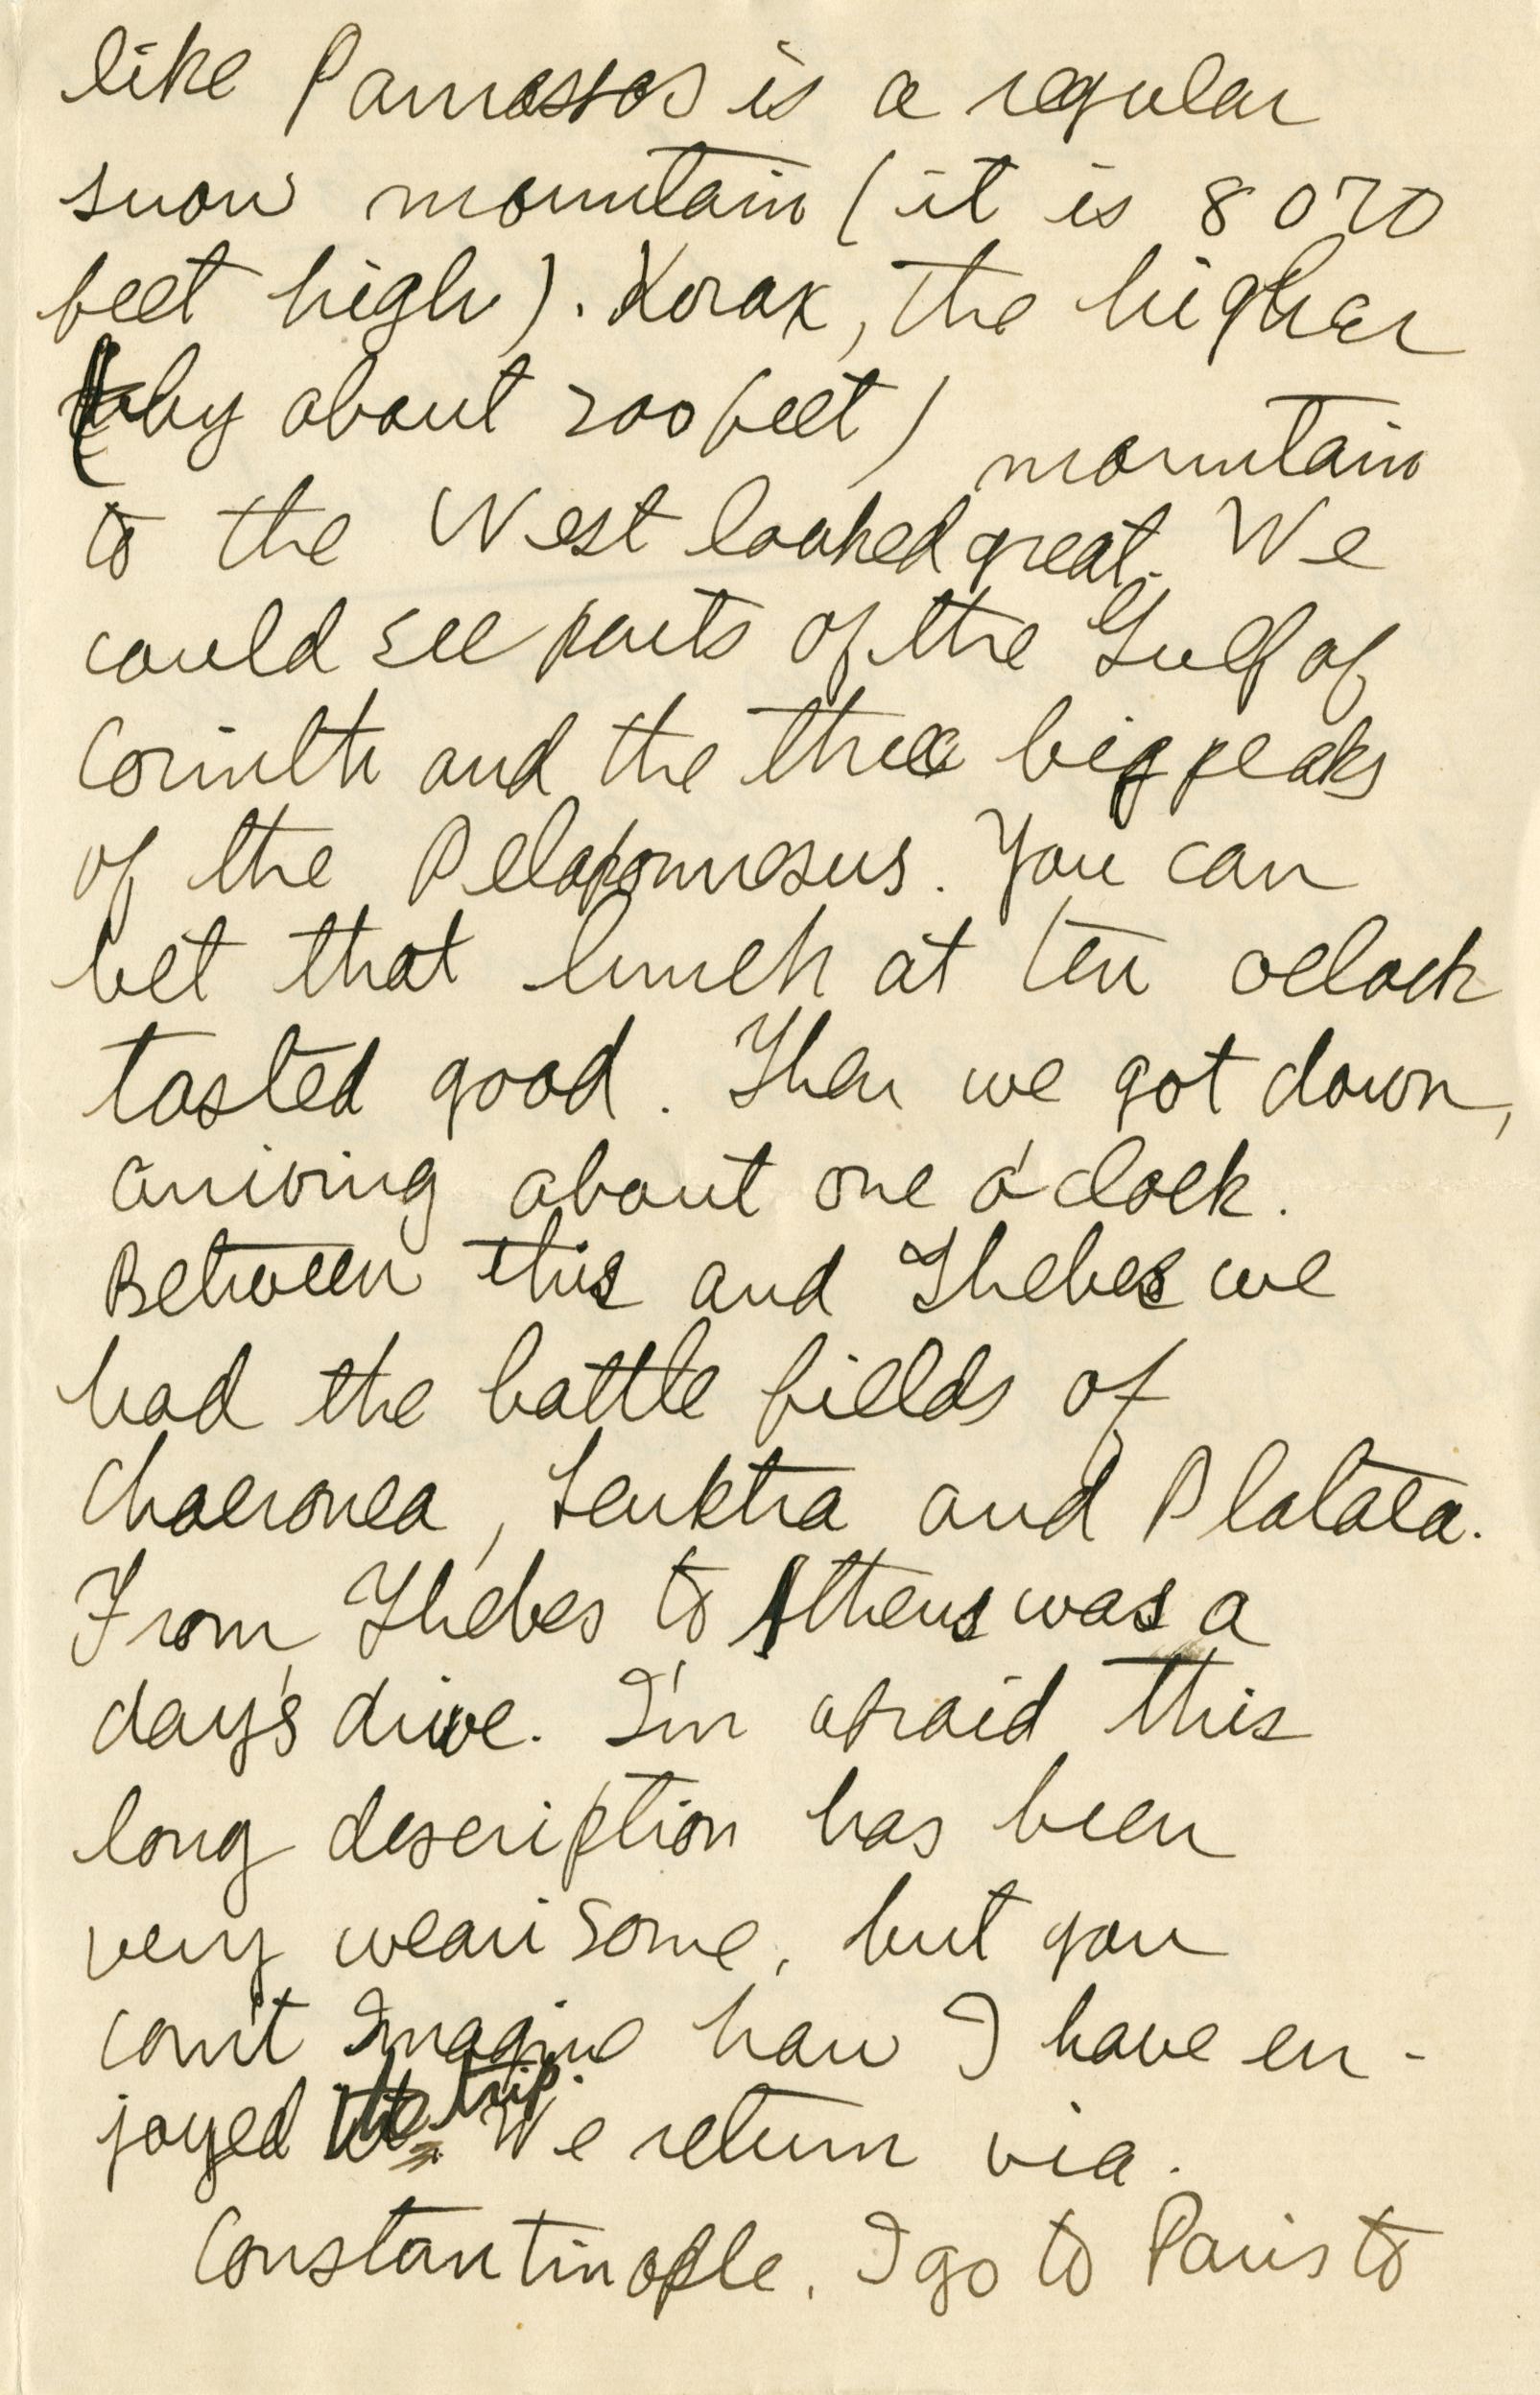 like Parnassos is a regular
snow mountain (it is 8070
feet high). Korax, the higher
(by about 200 feet) mountain
to the West looked great. We
could see parts of the Gulf of
Corinth and the three big peaks
of the Peloponnesus. You can
bet that lunch at ten oclock
tasted good. Then we got down,
arriving about one o'clock.
Between this and Thebes we
had the battle fields of
Chaeronea, Leuktra and Plataea.
From Thebes to Athens was a
day's drive. I'm afraid this
long description has been
very wearisome, but you
can't Imagine how I have en-
joyed the trip. We return via.
Constantinople. I go to Paris to